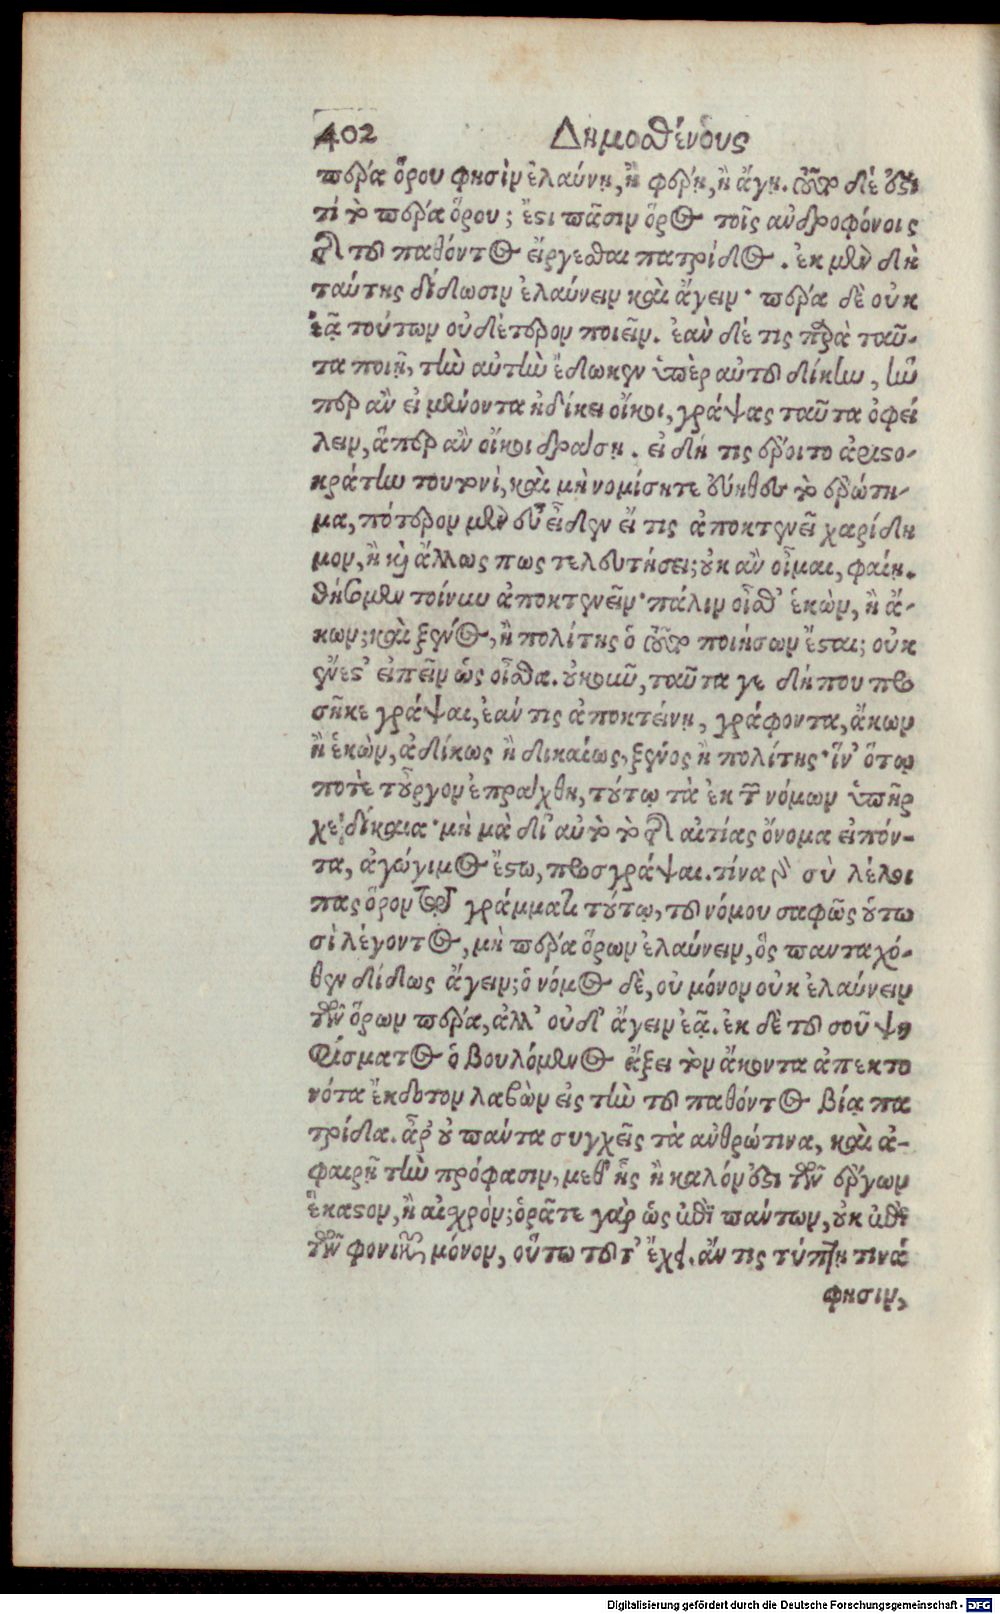 402 Δημοσθένους
πέρα ὅρου φησὶν ἐλαύνῃ, ἢ φέρῃ, ἢ ἄγῃ. τοῦτο δέ ἐστι
τί τὸ πέρα ὅρου; ἔστι πᾶσιν ὅρος τοῖς ἀνδροφόνοις
τῆς τοῦ παθόντος εἴργεσθαι πατρίδος. ἐκ μὲν δὴ
ταύτης δίδωσιν ἐλαύνειν καὶ ἄγειν· πέρα δὲ οὐκ
ἐᾷ τούτων οὐδέτερον ποιεῖν. ἐὰν δέ τις παρὰ ταῦ-
τα ποιῇ, τὴν αὐτὴν ἔδωκεν ὑπὲρ αὐτοῦ δίκην, ἣν
περ ἂν εἰ μένοντα ἠδίκει οἴκοι, γράψας ταῦτα ὀφεί
λειν, ἅπερ ἂν οἴκοι δράσῃ. εἰ δή τις ἔροιτο ἀριστο-
κράτην τουτονὶ, καὶ μὴ νομίσητε εὔηθες τὸ ἐρώτη-
μα, πότερον μὲν εὖ εἶδεν εἴ τις ἀποκτενεῖ χαρίδη
μον, ἢ καὶ ἄλλως πως τελευτήσει; οὐκ ἂν οἶμαι, φαίη.
θήσομεν τοίνυν ἀποκτενεῖν· πάλιν οἶσθ' ἑκὼν, ἢ ἄ-
κων; καὶ ξένος, ἢ πολίτης ὁ τοῦτο ποιήσων ἔσται; οὐκ
ἔνεστ' εἰπεῖν ὡς οἶσθα. οὐκοῦν, ταῦτα γε δήπου προ
σῆκε γράψαι, ἐάν τις ἀποκτείνῃ, γράφοντα, ἄκων
ἢ ἑκὼν, ἀδίκως ἢ δικαίως, ξένος ἢ πολίτης· ἵν' ὅτῳ
ποτὲ τοὖργον ἐπράχθη, τούτῳ τὰ ἐκ τῶν νόμων ὑπῆρ
χε δίκαια· μὴ μὰ δί' αὐτὸ τὸ τῆς αἰτίας ὄνομα εἰπόν-
τα, ἀγώγιμος ἔστω, προσγράψαι. τίνα γὰρ σὺ λέλοι
πας ὅρον τῷ γράμματι τούτῳ, τοῦ νόμου σαφῶς οὑτω
σὶ λέγοντος, μὴ πέρα ὅρων ἐλαύνειν, ὃς πανταχό-
θεν δίδως ἄγειν; ὁ νόμος δὲ, οὐ μόνον οὐκ ἐλαύνειν
τῶν ὅρων πέρα, ἀλλ' οὐδ' ἄγειν ἐᾷ. ἐκ δὲ τοῦ σοῦ ψη
φίσματος ὁ βουλόμενος ἄξει τὸν ἄκοντα ἀπεκτο
νότα ἔκδοτον λαβὼν εἰς τὴν τοῦ παθόντος βίᾳ πα
τρίδα. ἆρ' οὐ πάντα συγχεῖς τὰ ἀνθρώπινα, καὶ ἀ-
φαιρῇ τὴν πρόφασιν, μεθ' ἧς ἢ καλόν ἐστι τῶν ἔργων
ἕκαστον, ἢ αἰσχρόν; ὁρᾶτε γὰρ ὡς ἐπὶ πάντων, οὐκ ἐπὶ
τῶν φονικῶν μόνον, οὕτω τοῦτ' ἔχει. ἄν τις τύπτῃ τινά
φησιν,
Digitalisierung gefördert durch die Deutsche Forschungsgemeinschaft - DFG